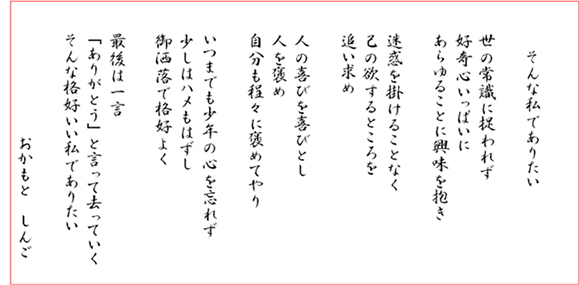 そんな私でありたい
世の常識に捉われず
好奇心いっぱいに
あらゆることに興味を抱き
迷惑を掛けることなく
己の欲するところを
追い求め
人の喜びを喜びとし
人を褒め
自分も程々に褒めてやり
いつまでも少年の心を忘れず
少しはハメもはずし
御洒落で格好よく
最後は一言
「ありがとう」と言って去っていく
そんな格好いい私でありたい
おかもと　しんご